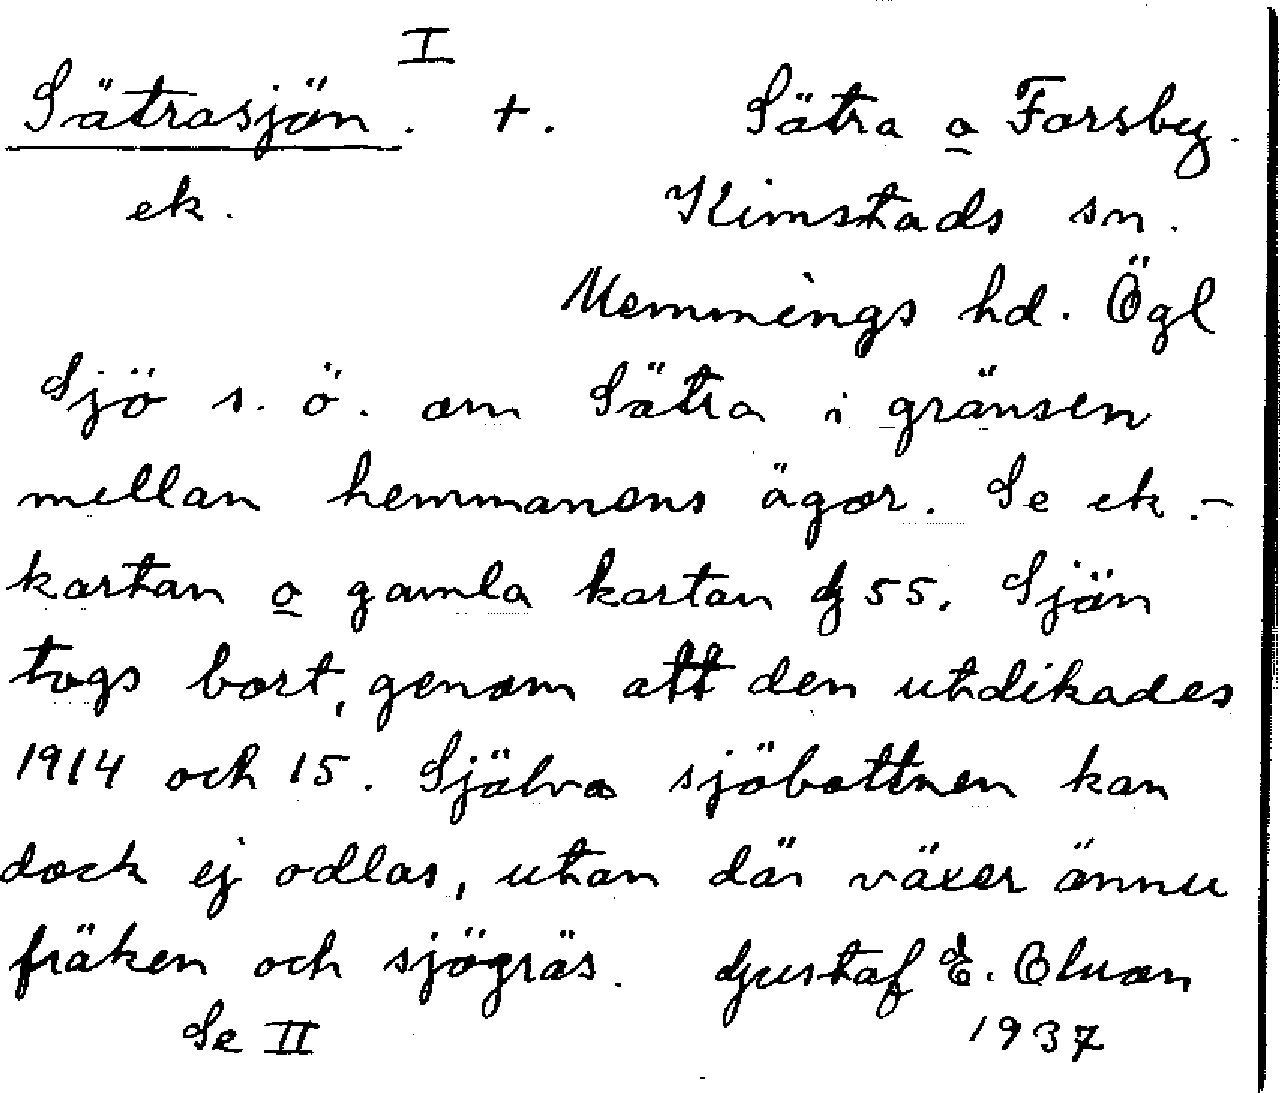 I
Sätrasjön. +. Sätra o Forsby.
ek. Kimstads sn.
Memmings hd. Ögl
Sjö s. ö. om Sätra i gränsen
mellan hemmanens ägor. Se ek.-
kartan o gamla kartan G 55. Sjön
togs bort, genom att den utdikades
1914 och 15. Själva sjöbottnen kan
dock ej odlas, utan där växer ännu
fräken och sjögräs. Gustaf E. Oluson
Se II 1937